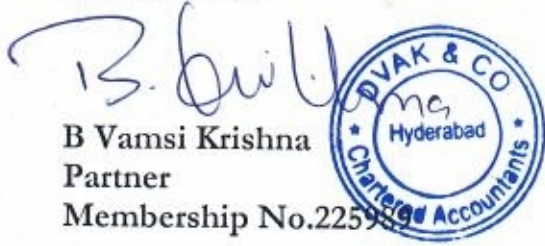 B Vamsi Krishna
Partner
Membership No.225989
DVAK & CO
Hyderabad
* Chartered Accountants *